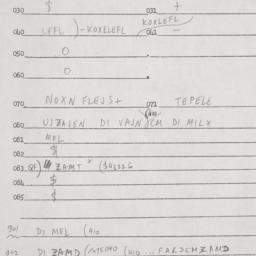 030 $ 031 +
040 LEFL )-KOXELEFL KOXLEFL 041 -
050 O
060 O
070 NOXN FLEJS+ 071 TEPELE
080 UJZAJEN DI VAJN CM DI MILX
081 MEL
082 $
083 ZAMT
084 $
085 $
901 DI MEL (410
902 DI ZAMD (410 ... FARDEMZAMD